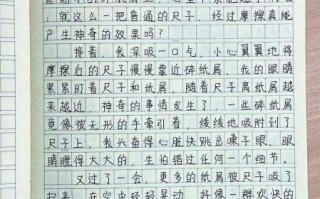 ：就这么一把普通的尺子，经过摩擦真能
产生神奇的效果吗？
接着，我深吸一口气，小心翼翼地将
摩擦后的尺子慢慢靠近碎纸屑，我的眼睛
紧紧盯着尺子和纸屑，随着尺子离纸屑越
来越近，神奇的事情发生了，一些碎纸屑
竟像被无形的手牵引着，缓缓地吸附到了
尺子上，我兴奋得心脏快跳出嗓子眼，眼
睛瞪得大大的，生怕错过任何一个细节。
又过了一会，更多的纸屑被尺子吸了
起来，在空中轻轻晃动，好像一群欢快的